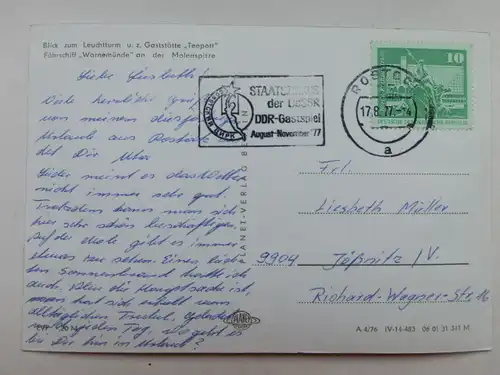 Blick zum Leuchtturm u. z. Gaststätte „Teepott"
Fährschiff „Warnemünde" an der Molenspitze
Liebe
Viele herzliche Grüße
von meinem diesjährigen
Urlaub aus Rostock
Dir
Leider meint es das Wetter
nicht immer sehr gut.
Trotzdem kann man sich
hier sehr schön beschäftigen.
Auf die Weise gibt es immer
etwas neu sehen. Einen leich-
ten Sonnenbrand hatte ich
auch. Aber die Hauptsache ist,
man hat sich erholt vom
alltäglichen Trubel.
Tag. Wo geht es
bei Dir hin im Urlaub?
PLANET-VERLAG BERLIN
PLANET
STAATSZIRKUS
der UdSSR
DDR-Gastspiel
August-November '77
ЦИРК
ROSTOCK
17.8.77-14
a
10
Frl.
Liesbeth Müller
9904 Jößnitz / V.
Richard-Wagner-Str. 16
A 4/76 IV-14-483 06 01 31 341 M